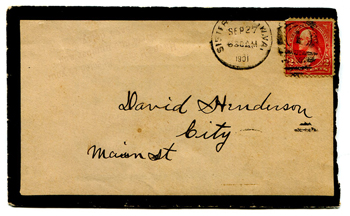 SEP 27
630AM
1901
2 2
David Henderson
City
Main st